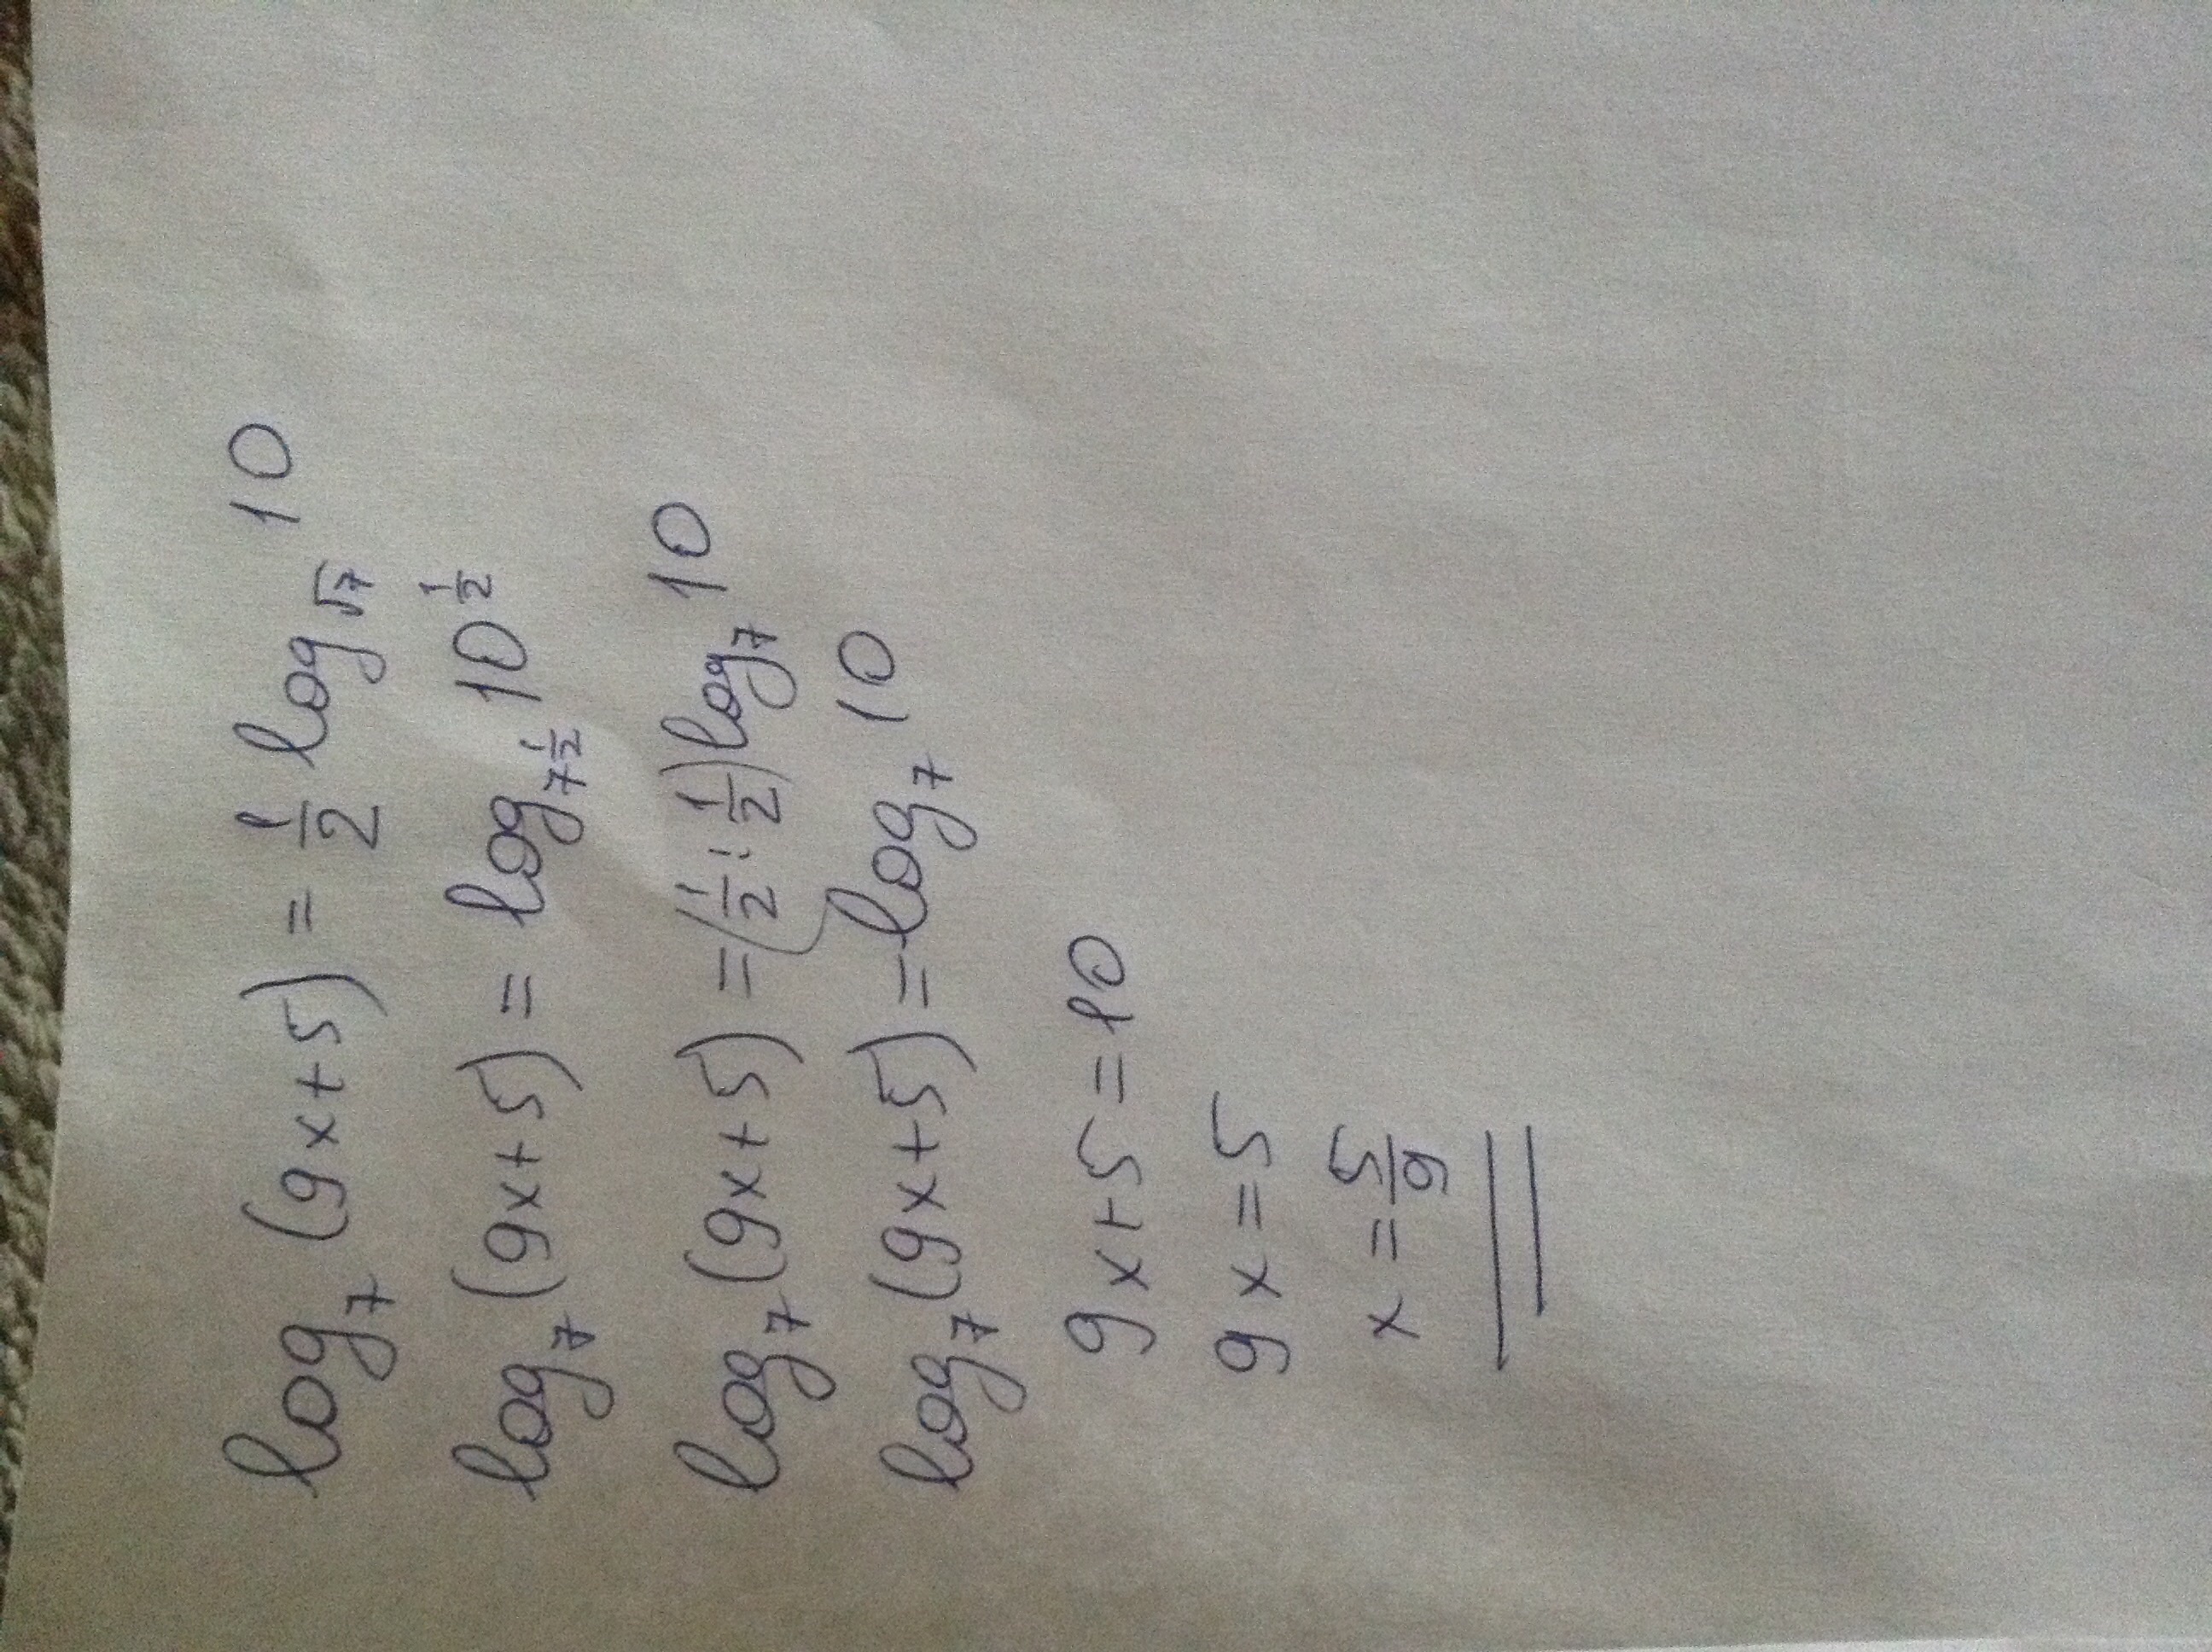 log₇ (9x+5) = 1/2 log_√7 10
log₇ (9x+5) = log_7^(1/2) 10^(1/2)
log₇ (9x+5) = (1/2 : 1/2) log₇ 10
log₇ (9x+5) = log₇ 10
9x+5=10
9x=5
x=5/9